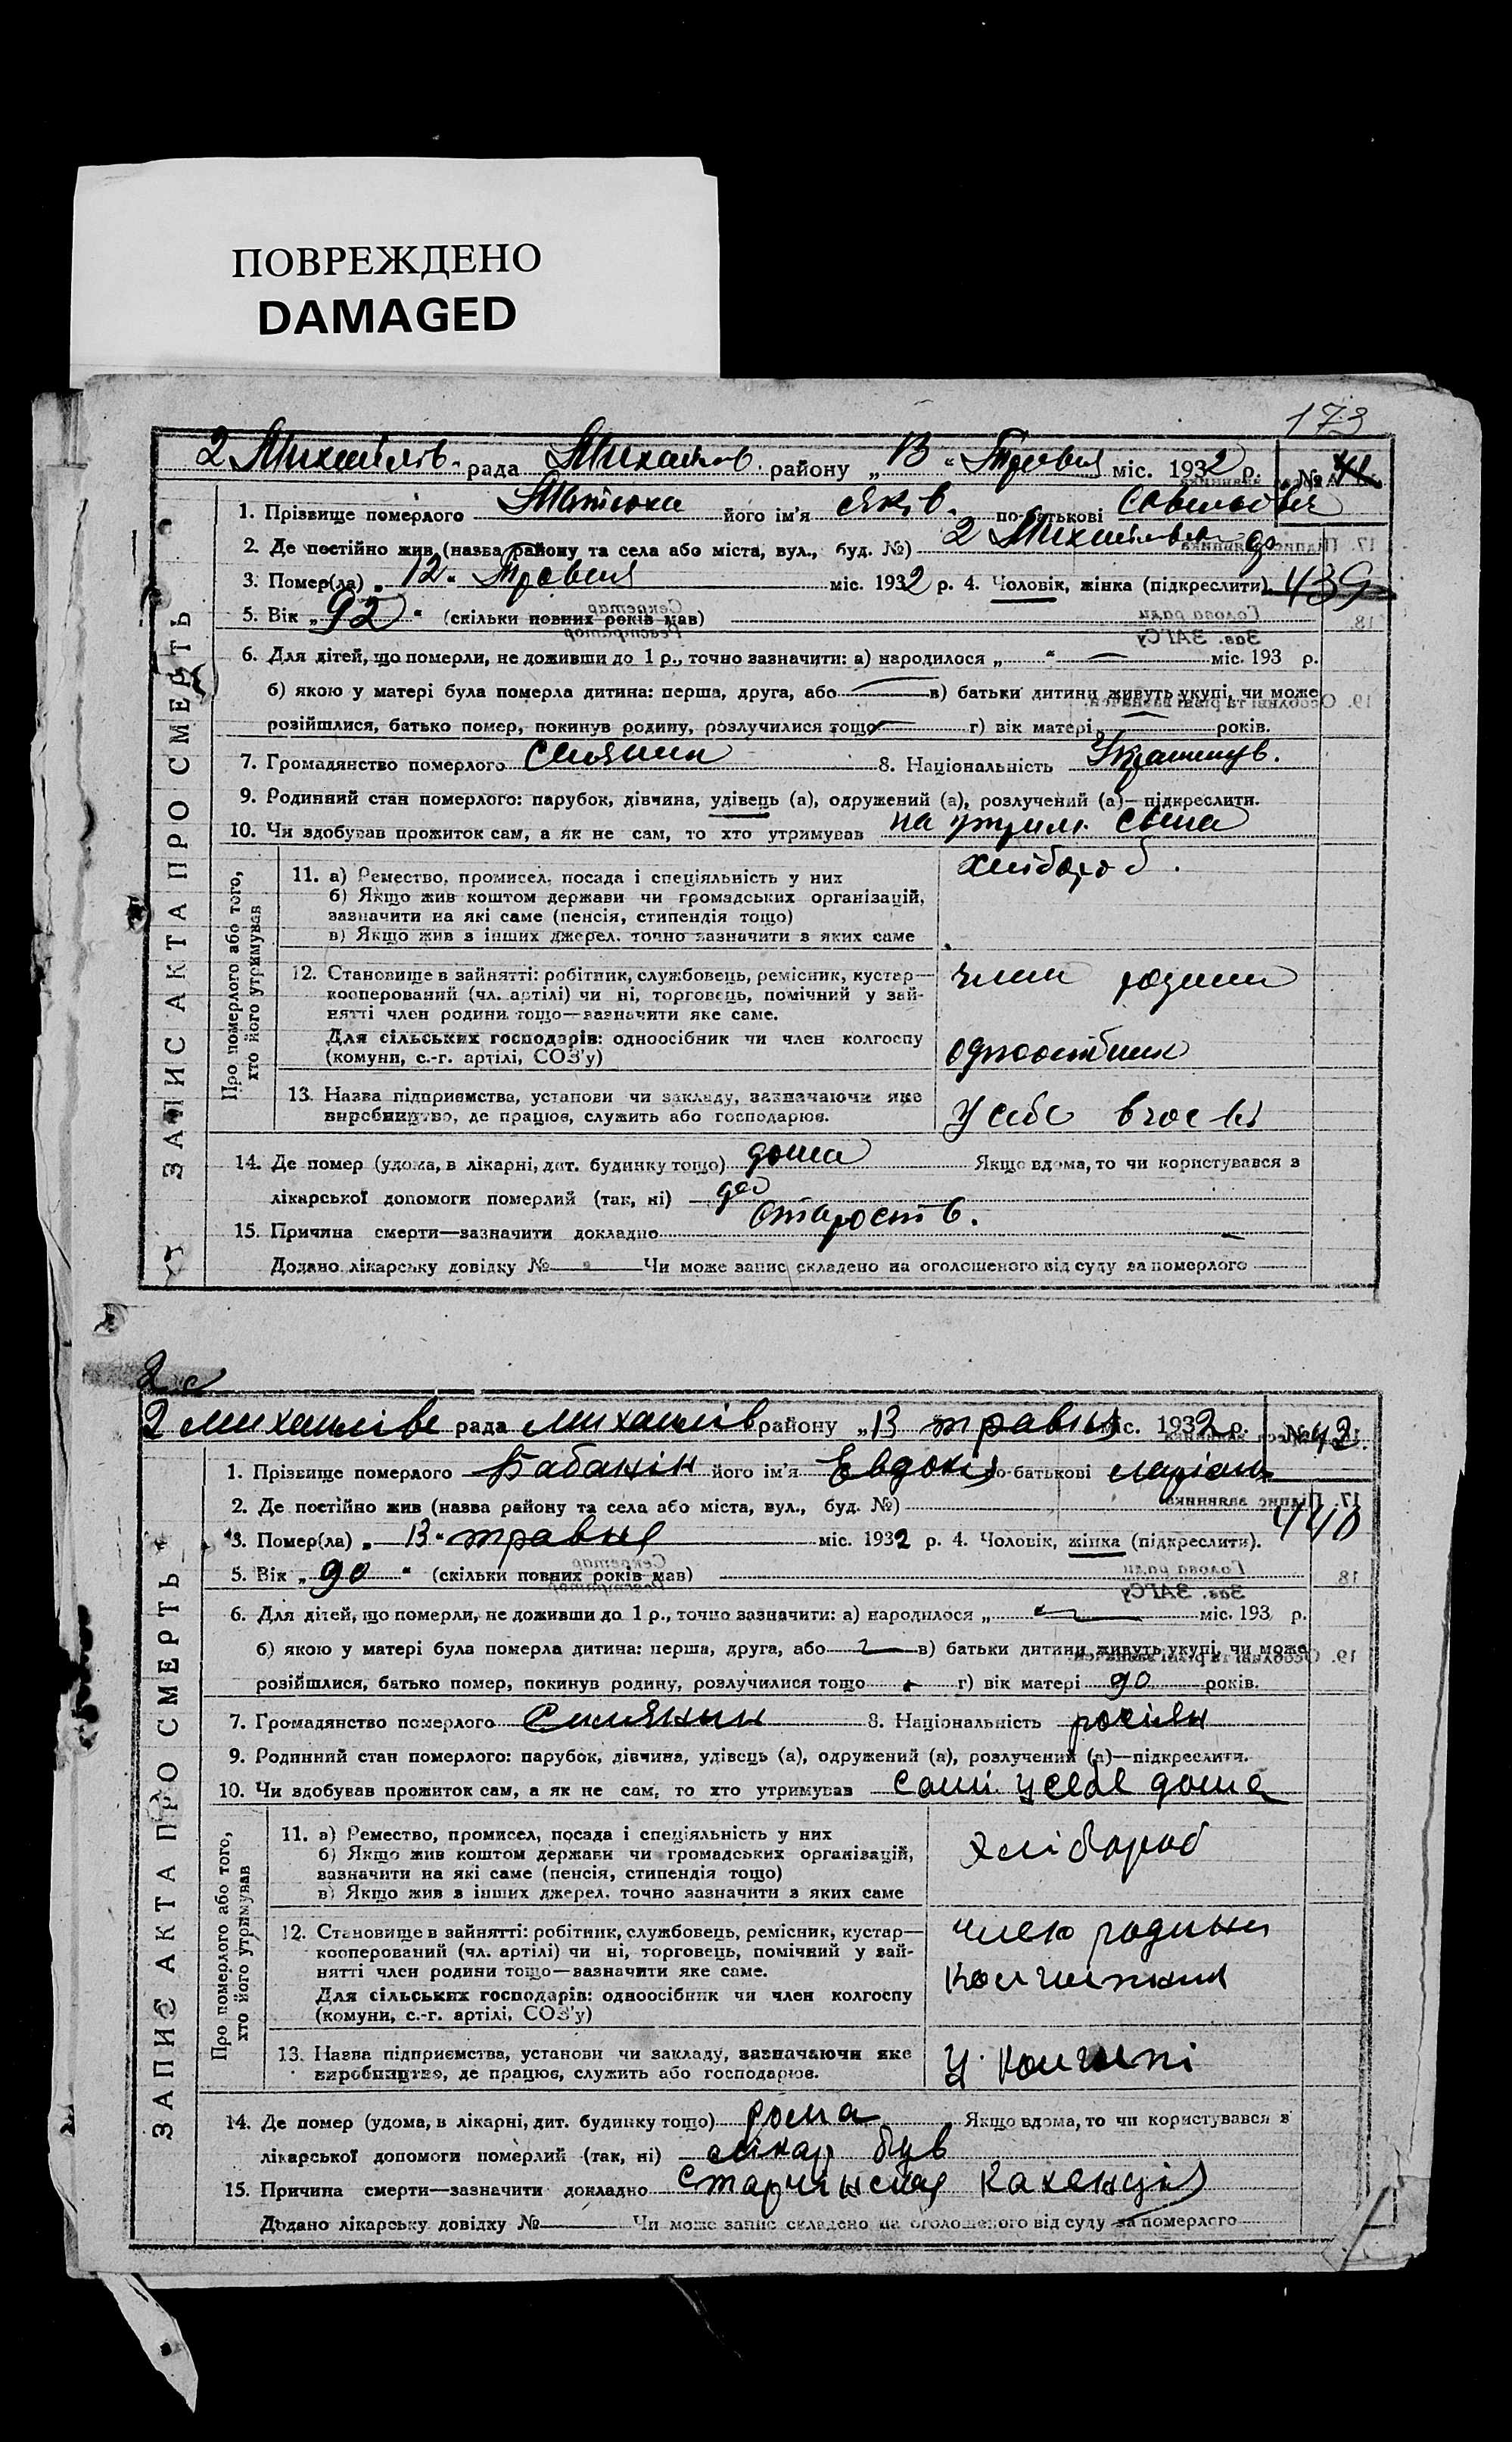 ПОВРЕЖДЕНО
DAMAGED
173
2 Михайлів. рада Михайлів. району „13“ Травня міс. 1932 р. №
1. Прізвище померлого його ім'я Яків. по-батькові Савельович
2. Де постійно жив (назва району та села або міста, вул., буд. №) 2 Михайлівка
3. Помер(ла) „12“ Травня міс. 1932 р. 4. Чоловік, жінка (підкреслити). 439
5. Вік „92“ (скільки повних років мав)
6. Для дітей, що померли, не доживши до 1 р., точно зазначити: а) народилося „ “ — міс. 193 р.
б) якою у матері була померла дитина: перша, друга, або — в) батьки дитини живуть укупі, чи може
розійшлися, батько помер, покинув родину, розлучилися тощо — г) вік матері — років.
7. Громадянство померлого Селянин 8. Національність Українців.
9. Родинний стан померлого: парубок, дівчина, удівець (а), одружений (а), розлучений (а)—підкреслити.
10. Чи здобував прожиток сам, а як не сам, то хто утримував на утрим. сина
ЗАПИС АКТА ПРО СМЕРТЬ
Про померлого або того,
хто його утримував
11. а) Ремество, промисел, посада і спеціяльність у них
б) Якщо жив коштом держави чи громадських організацій,
зазначити на які саме (пенсія, стипендія тощо)
в) Якщо жив з інших джерел, точно зазначити з яких саме
хлібороб.
12. Становище в зайнятті: робітник, службовець, ремісник, кустар—
кооперований (чл. артілі) чи ні, торговець, помічний у зай-
нятті член родини тощо—зазначити яке саме.
Для сільських господарів: одноосібник чи член колгоспу
(комуни, с.-г. артілі, СОЗ'у)
член родини
одноосібник
13. Назва підприємства, установи чи закладу, зазначаючи яке
виробництво, де працює, служить або господарює.
У себе
14. Де помер (удома, в лікарні, дит. будинку тощо) дома Якщо вдома, то чи користувався з
лікарської допомоги померлий (так, ні)
15. Причина смерти—зазначити докладно Старость.
Додано лікарську довідку № — Чи може запис складено на оголошеного від суду за померлого —
2 Михайлівс рада Михайлів району „13 травня міс. 1932 р. № 42.
1. Прізвище померлого Бабакін його ім'я Евдокія по-батькові
2. Де постійно жив (назва району та села або міста, вул., буд. №)
440
3. Помер(ла) „13“ травня міс. 1932 р. 4. Чоловік, жінка (підкреслити).
5. Вік „90“ (скільки повних років мав)
6. Для дітей, що померли, не доживши до 1 р., точно зазначити: а) народилося „ “ — міс. 193 р.
б) якою у матері була померла дитина: перша, друга, або — в) батьки дитини живуть укупі, чи може
розійшлися, батько помер, покинув родину, розлучилися тощо — г) вік матері 90 років.
7. Громадянство померлого Силянин 8. Національність росіян
9. Родинний стан померлого: парубок, дівчина, удівець (а), одружений (а), розлучений (а)—підкреслити.
10. Чи здобував прожиток сам, а як не сам, то хто утримував сам у себе дома
ЗАПИС АКТА ПРО СМЕРТЬ
Про померлого або того,
хто його утримував
11. а) Ремество, промисел, посада і спеціяльність у них
б) Якщо жив коштом держави чи громадських організацій,
зазначити на які саме (пенсія, стипендія тощо)
в) Якщо жив з інших джерел, точно зазначити з яких саме
Хлібороб
12. Становище в зайнятті: робітник, службовець, ремісник, кустар—
кооперований (чл. артілі) чи ні, торговець, помічний у зай-
нятті член родини тощо—зазначити яке саме.
Для сільських господарів: одноосібник чи член колгоспу
(комуни, с.-г. артілі, СОЗ'у)
член родини
13. Назва підприємства, установи чи закладу, зазначаючи яке
виробництво, де працює, служить або господарює.
14. Де помер (удома, в лікарні, дит. будинку тощо) дома Якщо вдома, то чи користувався з
лікарської допомоги померлий (так, ні) лікар був
15. Причина смерти—зазначити докладно
Додано лікарську довідку № — Чи може запис складено на оголошеного від суду за померлого